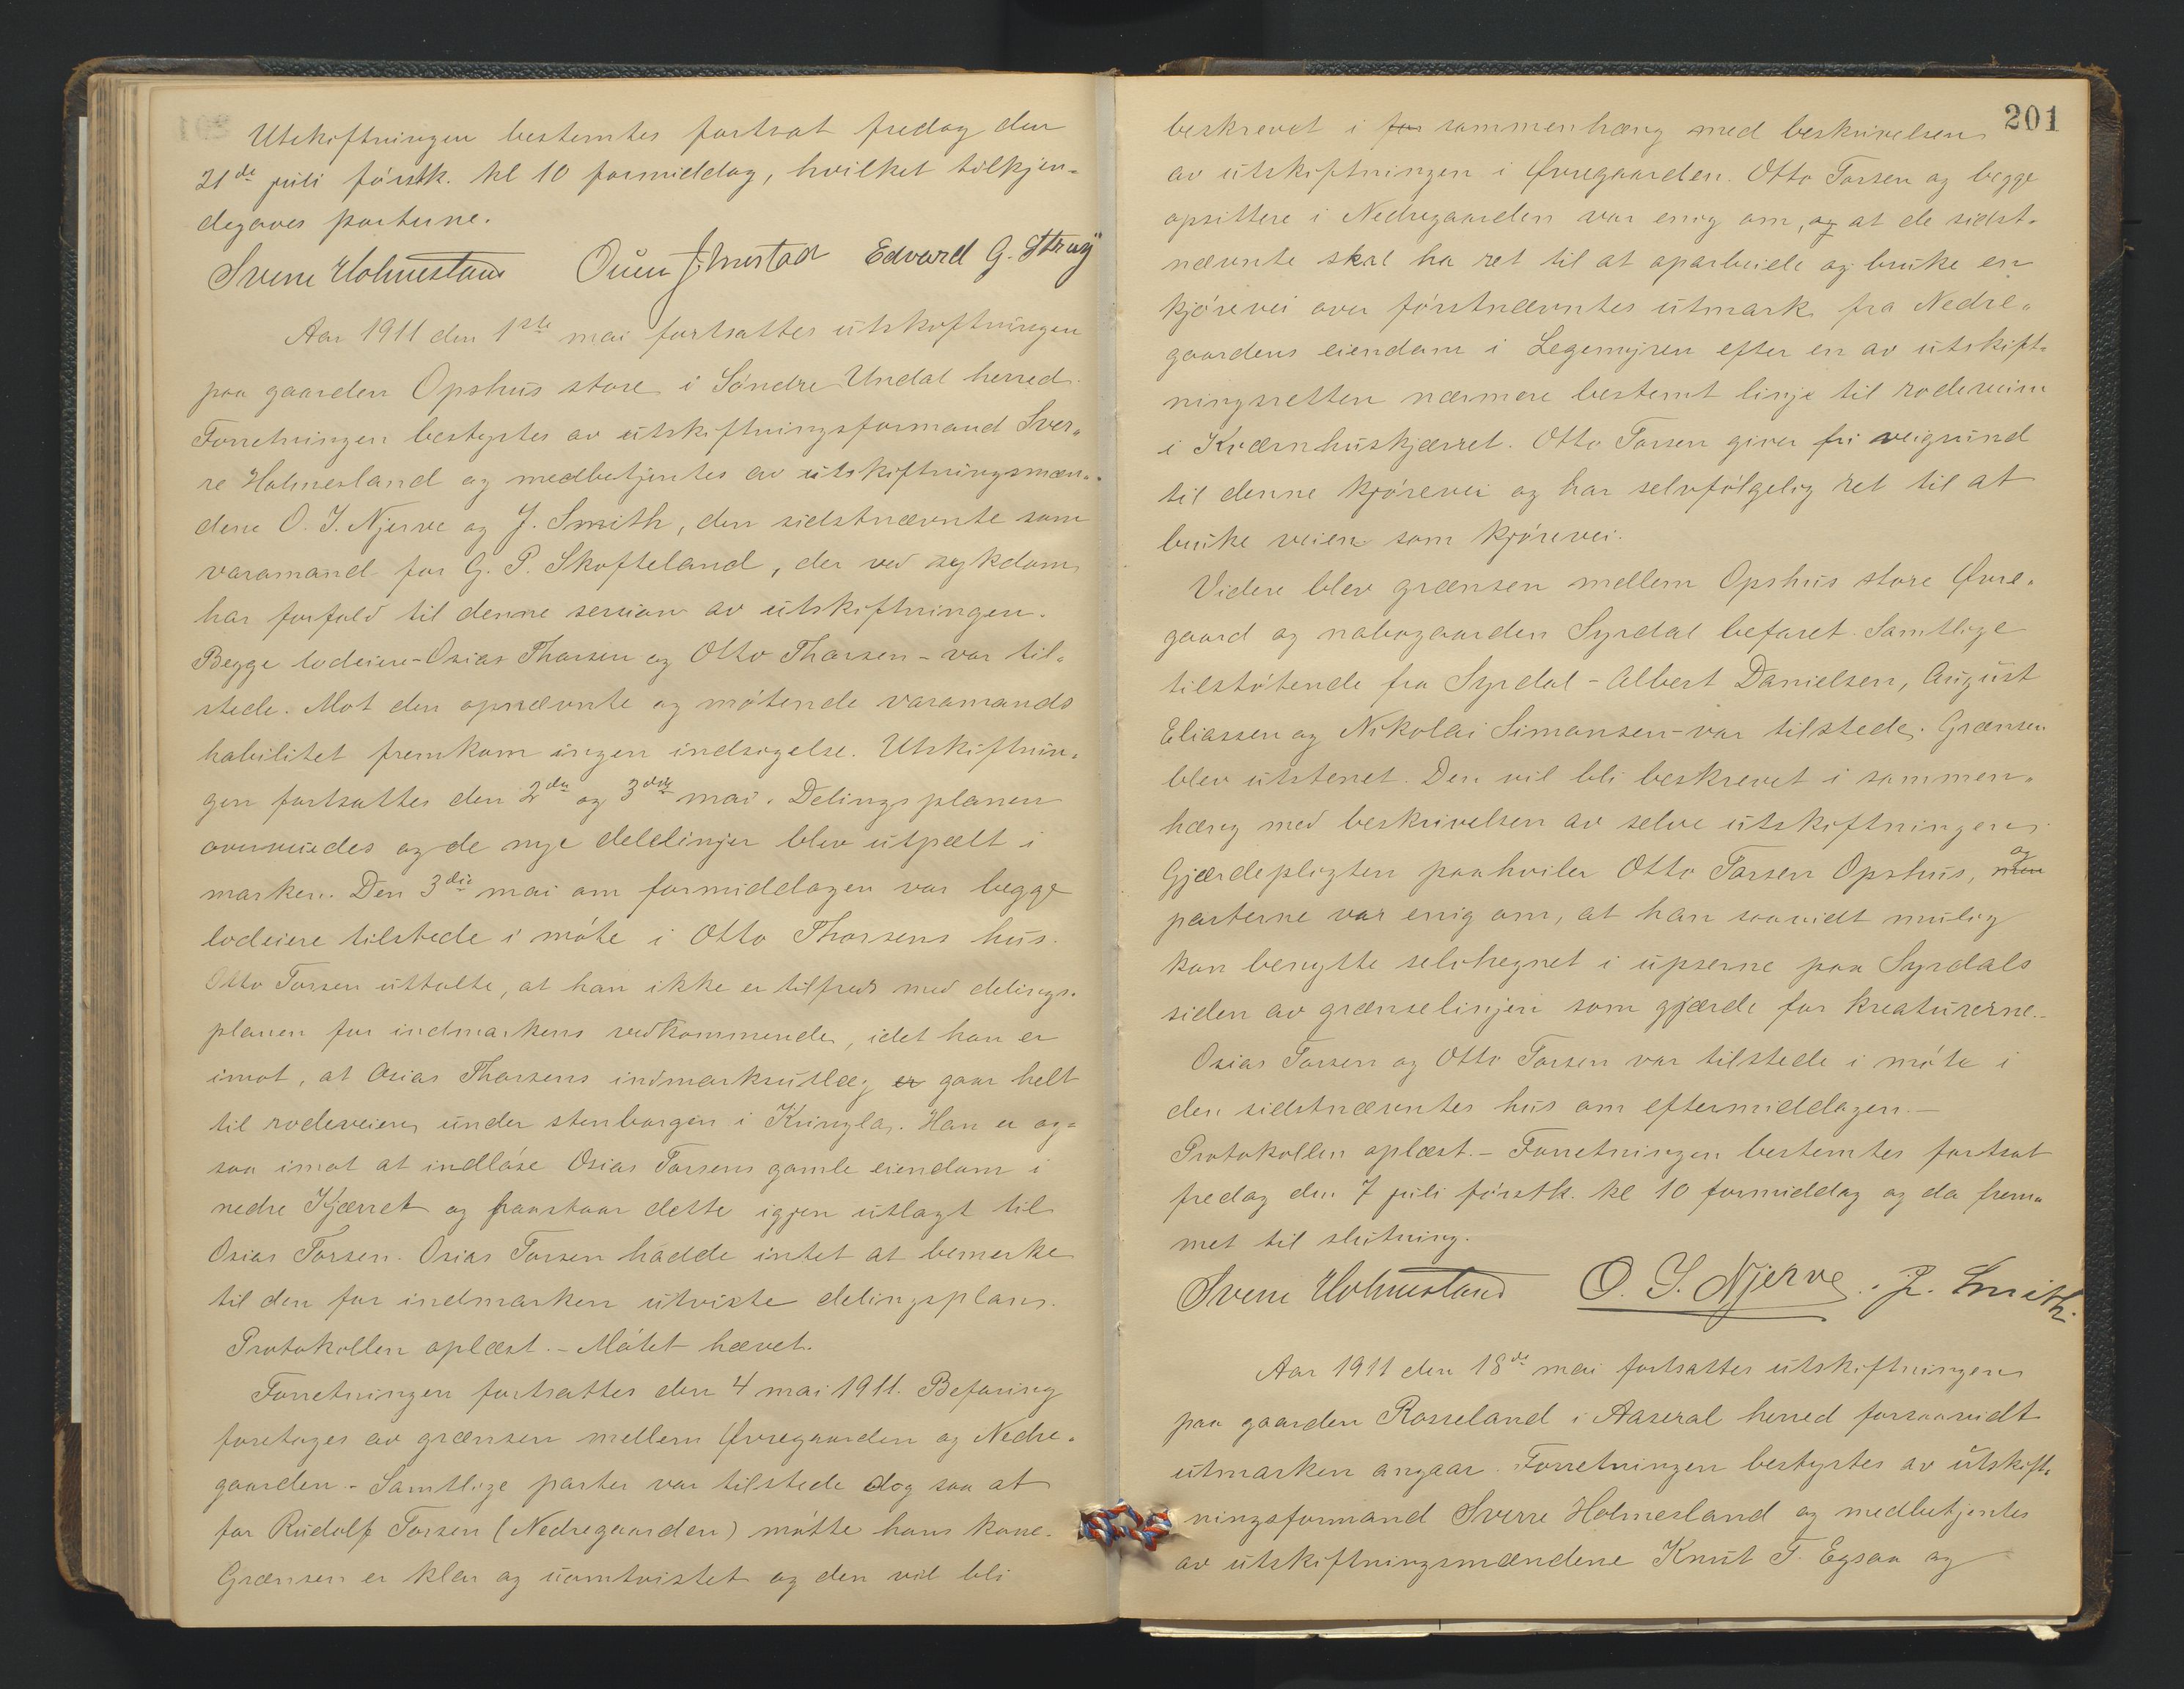 Utskiftningen bestemtes fortsat fredag den
21de juli førstk. kl 10 formiddag, hvilket tilkjen-
degaves parterne.
Sverre Holmesland Edvard G.
Aar 1911 den 1ste mai fortsattes utskiftningen
paa gaarden Opshus store i Søndre Undal herred.
Forretningen bestyrtes av utskiftningsformand Sver-
re Holmesland og medbetjentes av utskiftningsmæn-
dene O. S. Njerve og J. Smith, den sidstnævnte som
varamand for G. P. Skofteland, der ved sykdom
har forfald til denne session av utskiftningen.
Begge lodeiere - Osias Tharsen og Otto Tharsen - var til-
stede. Mot den opnævnte og møtende varamands
habilitet fremkom ingen indsigelse. Utskiftnin-
gen fortsattes den 2den og 3die mai. Delingsplanen
overveiedes og de nye delelinjer blev utpælt i
marken. Den 3die mai om formiddagen var begge
lodeiere tilstede i møte i Otto Tharsens hus.
Otto Tarsen uttalte, at han ikke er tilfreds med delings-
planen for indmarkens vedkommende, idet han er
imot, at Osias Tharsens indmarksutlæg er gaar helt
til rodeveien under stenborgen i Kringla. Han er og-
saa imot at indløse Osias Tarsens gamle eiendom i
nedre Kjærret og paastaar dette igjen utlagt til
Osias Tarsen. Osias Tarsen hadde intet at bemerke
til den for indmarken utviste delingsplan.
Protokollen oplæst. - Møtet hævet.
Forretningen fortsattes den 4 mai 1911. Befaring
foretoges av grænsen mellem Øvregaarden og Nedre-
gaarden - Samtlige parter var tilstede dog saa at
for Rudolf Tarsen (Nedregaarden) møtte hans kone.
Grænsen er klar og uomtvistet og den vil bli
201
beskrevet i for sammenhæng med beskrivelsen
av utskiftningen i Øvregaarden. Otto Tarsen og begge
opsittere i Nedregaarden var enig om, og at de sidst-
nævnte skal ha ret til at oparbeide og bruke en
kjørevei over førstnævntes utmark fra Nedre-
gaardens eiendom i Legemyren efter en av utskift-
ningsretten nærmere bestemt linje til rodeveien
i Kværnhuskjærret. Otto Tarsen giver fri veigrund
til denne kjørevei og har selvfølgelig ret til at
bruke veien som kjørevei.
Videre blev grænsen mellem Opshus store Øvre-
gaard og nabogaarden Syrdal befaret. Samtlige
tilstøtende fra Syrdal - Albert Danielsen, August
Eliassen og Nikolai Simonsen - var tilstede. Grænsen
blev utstenet. Den vil bli beskrevet i sammen-
hæng med beskrivelsen av selve utskiftningen.
Gjærdepligten paahviler Otto Tarsen Opshus, men og
parterne var enig om, at han saavidt mulig
kan benytte selvhegnet i upserne paa Syrdals
siden av grænselinjen som gjærde for kreaturerne. -
Osias Tarsen og Otto Tarsen var tilstede i møte i
den sidstnævntes hus om eftermiddagen. -
Protokollen oplæst. - Forretningen bestemtes fortsat
fredag den 7 juli førstk. kl 10 formiddag og da frem-
met til slutning.
Sverre Holmesland O. S. Njerve. J. Smith.
Aar 1911 den 18de mai fortsattes utskiftningen
paa gaarden Rosseland i Aaseral herred forsaavidt
utmarken angaar. Forretningen bestyrtes av utskift-
ningsformand Sverre Holmesland og medbetjentes
av utskiftningsmændene Knut T. Egsaa og